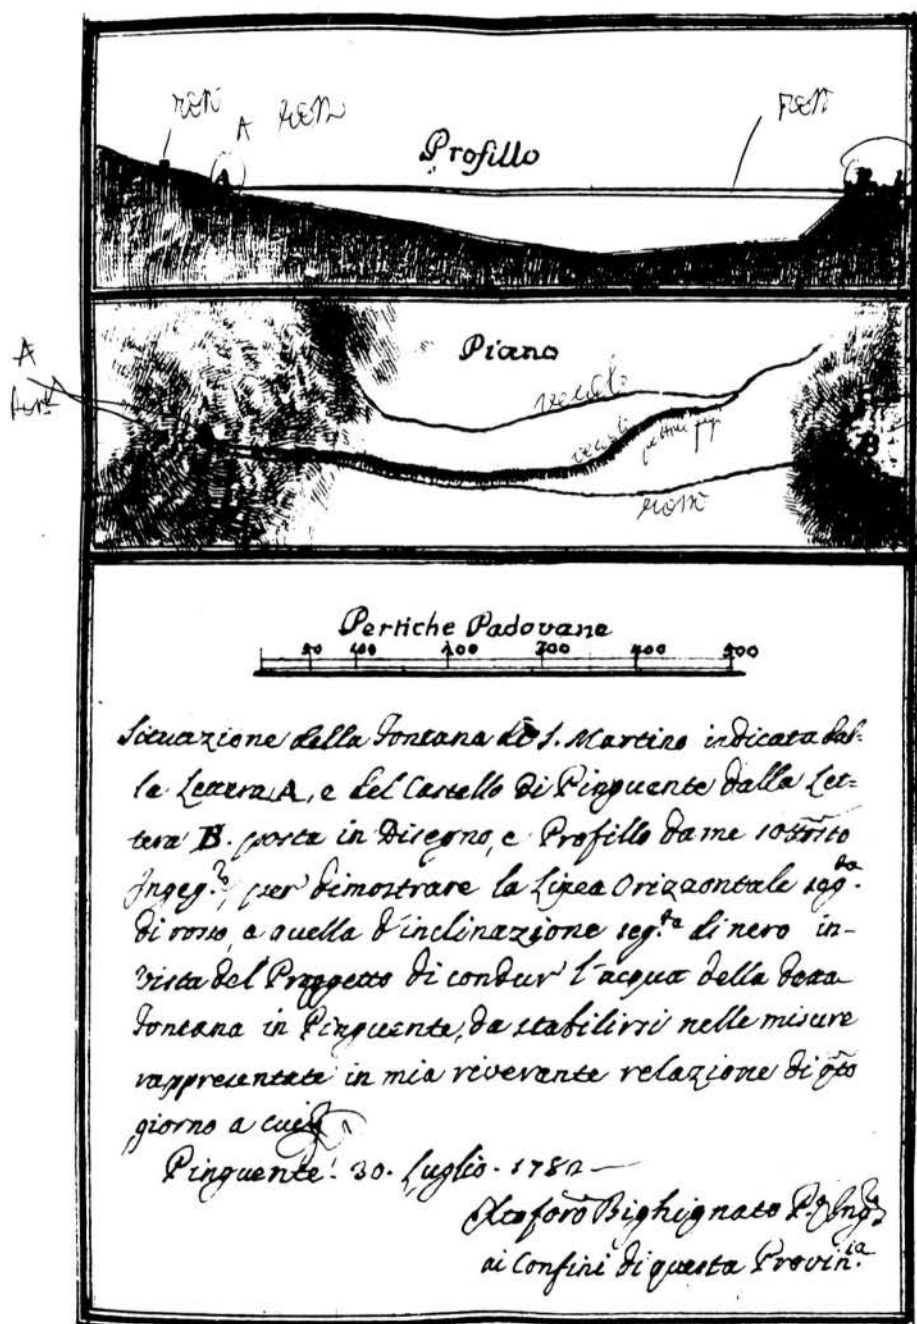 A
Profillo
A
B
Piano
A
B
Pertiche Padovane
50 100 200 400 500
Situazione della Fontana di S. Martino indicata dal-
la Lettera A, e del Castello di Pinguente dalla Let-
tera B. posta in Disegno, e Profillo da me sottoscritto
Ingeg.r, per dimostrare la Linea Orizzontale seg.ta
di rosso, e quella d'inclinazione seg.ta di nero in-
vista del Proggetto di condur' l'acqua della detta
Fontana in Pinguente, da stabilirsi nelle misure
rappresentate in mia riverente relazione di qto
giorno a cui
Pinguente. 30. Luglio. 1782
Bighignato P. Ing.
ai Confini di questa Provin.a